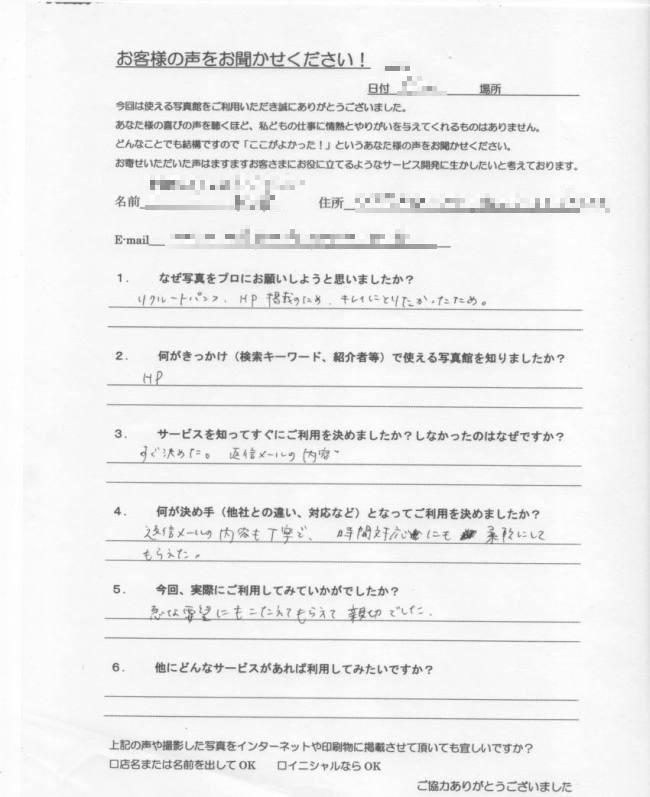 お客様の声をお聞かせください！
日付 場所
今回は使える写真館をご利用いただき誠にありがとうございました。
あなた様の喜びの声を聴くほど、私どもの仕事に情熱とやりがいを与えてくれるものはありません。
どんなことでも結構ですので「ここがよかった！」というあなた様の声をお聞かせください。
お寄せいただいた声はますますお客さまにお役に立てるようなサービス開発に生かしたいと考えております。
名前 住所
E-mail
1． なぜ写真をプロにお願いしようと思いましたか？
リクルートパンフ、HP 掲載のため、キレイにとりたかったため。
2． 何がきっかけ（検索キーワード、紹介者等）で使える写真館を知りましたか？
HP
3． サービスを知ってすぐにご利用を決めましたか？しなかったのはなぜですか？
すぐ決めた。返信メールの内容で
4． 何が決め手（他社との違い、対応など）となってご利用を決めましたか？
返信メールの内容も丁寧で、時間対応にも柔軟にして
もらえた。
5． 今回、実際にご利用してみていかがでしたか？
急な要望にもこたえてもらえて親切でした.
6． 他にどんなサービスがあれば利用してみたいですか？
上記の声や撮影した写真をインターネットや印刷物に掲載させて頂いても宜しいですか？
□店名または名前を出してOK □イニシャルならOK
ご協力ありがとうございました